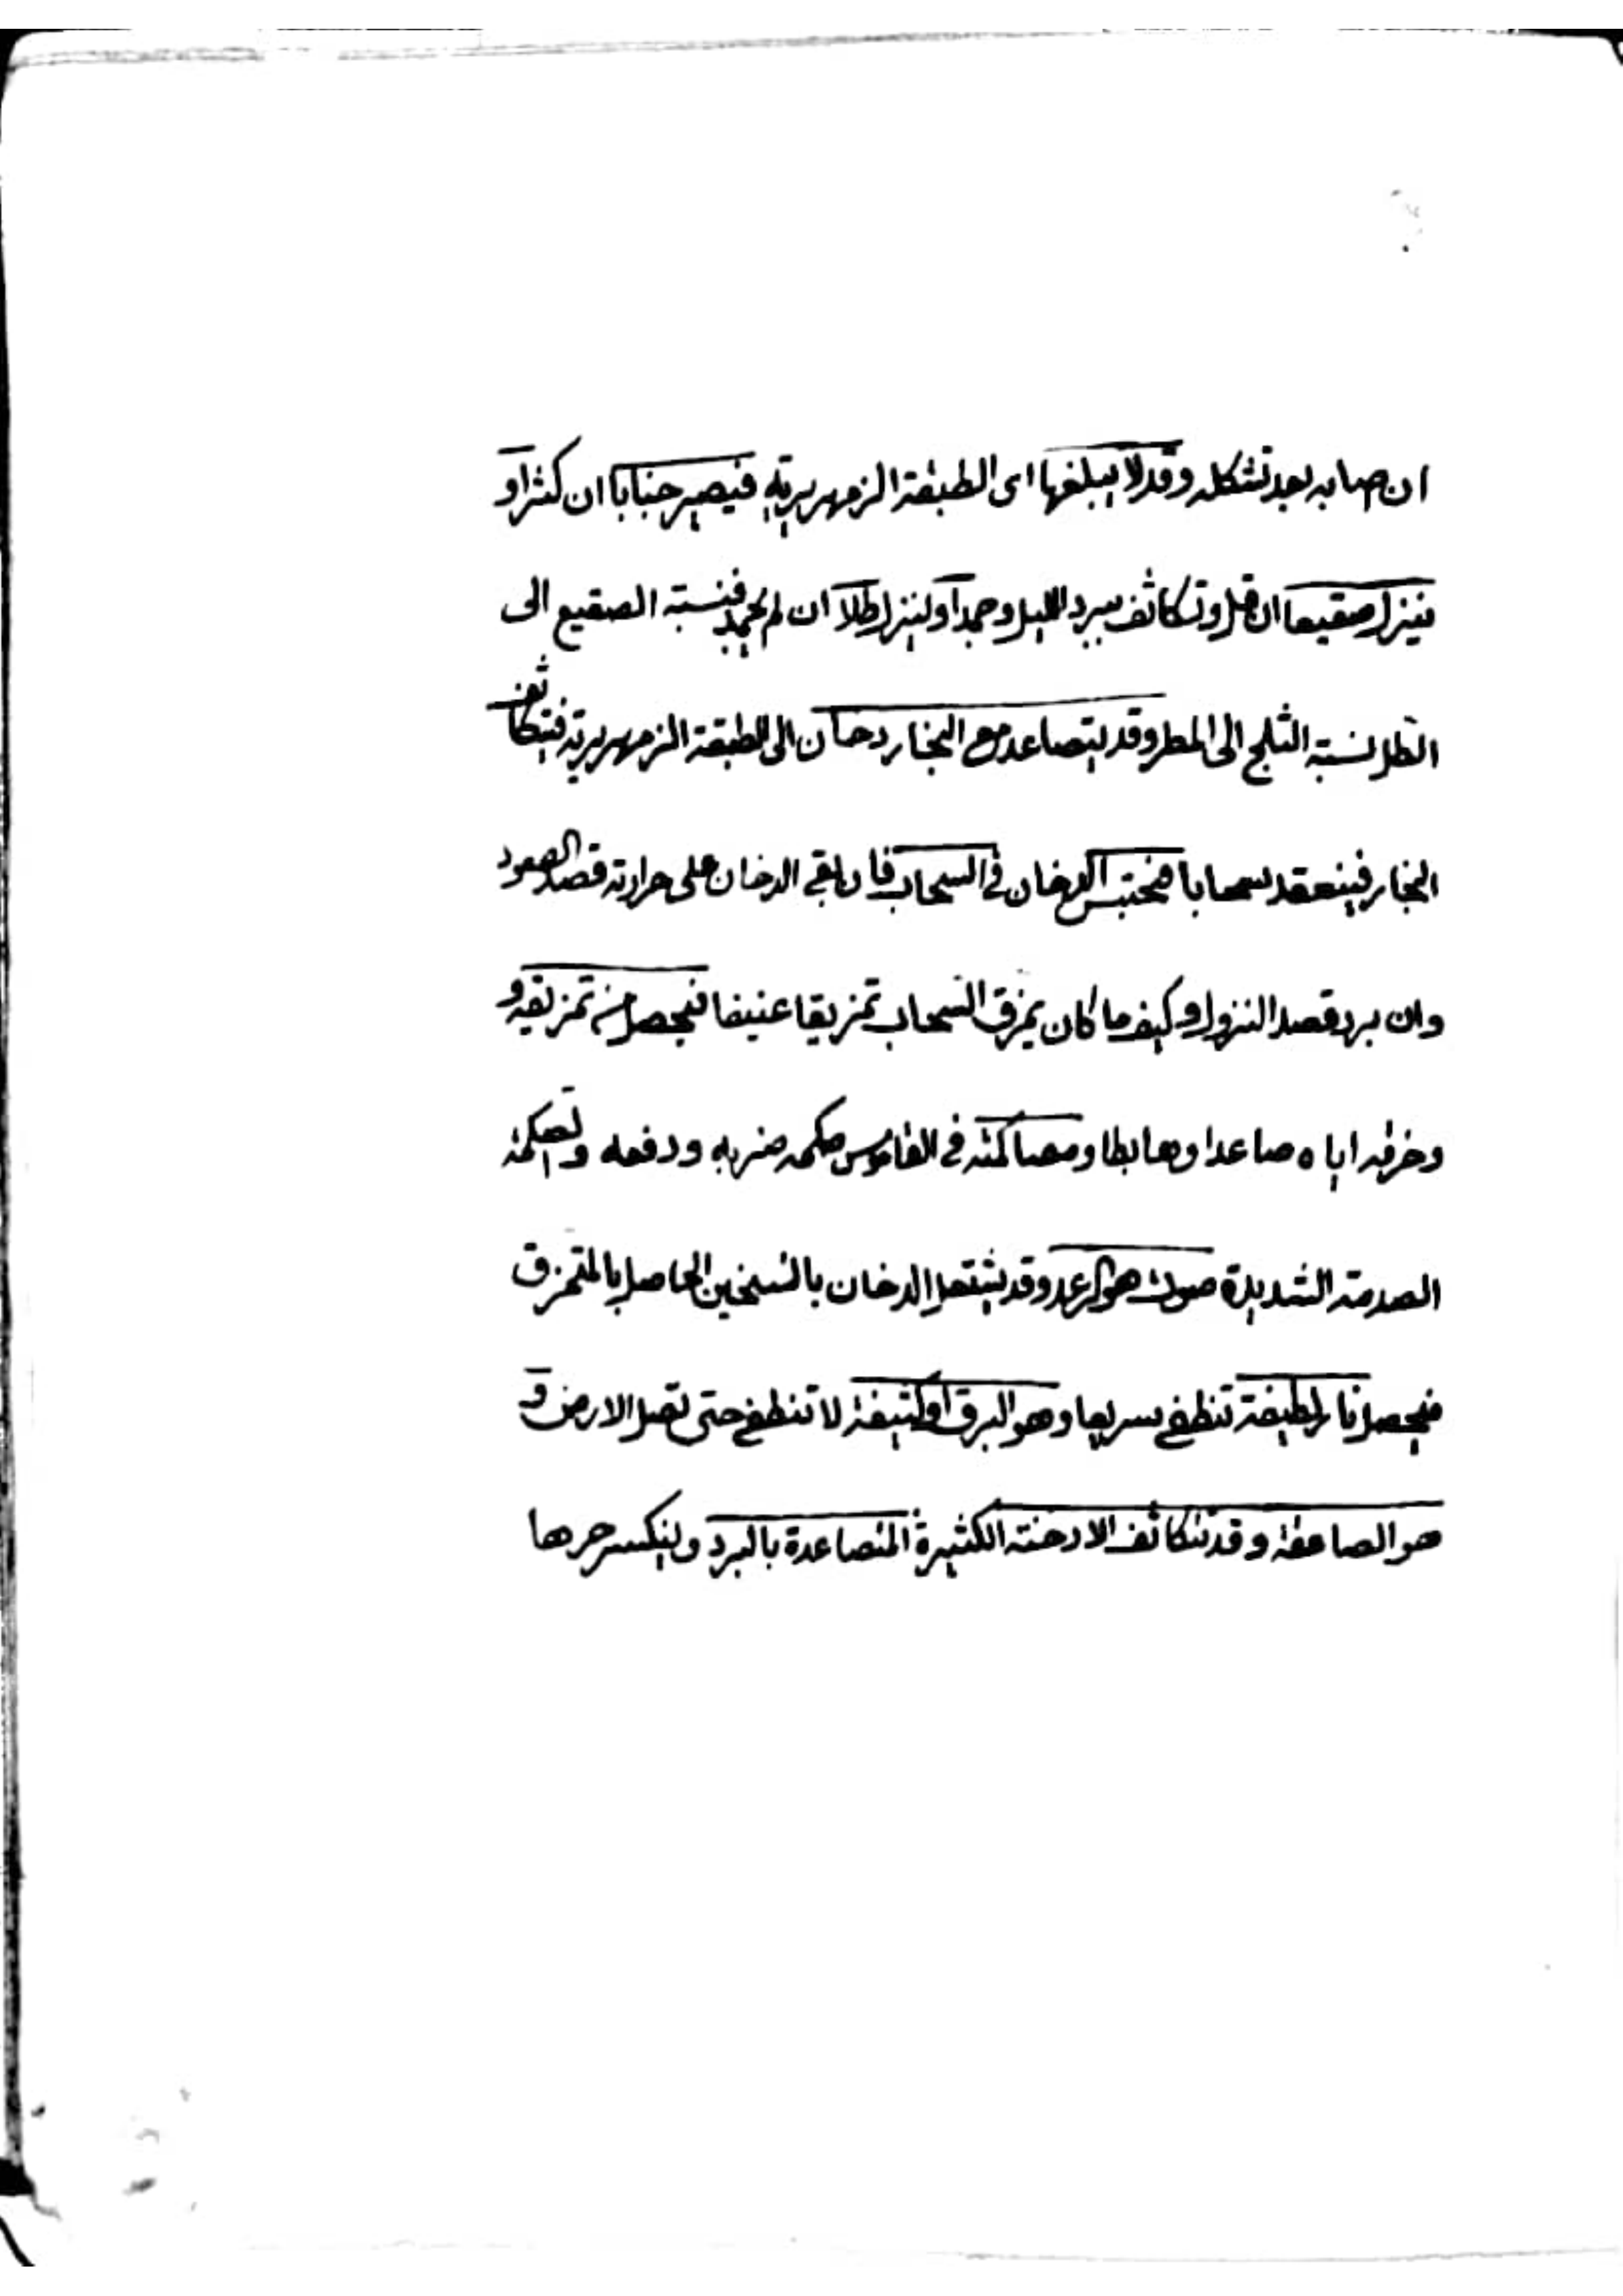 ان صابه بعد تشكله وقد لا يبلغها اى الطبقة الزمهريرية فيصير ضبابا ان كثر او
ينزل صقيعا ان قل وتكاثف ببرد الليل وجمد او لينزل طلا ان لم يجمد فنسبة الصقيع الى
الطل نسبة الثلج الى المطر وقد يتصاعد مع البخار دخان الى الطبقة الزمهريرية فتكاثف
البخار فينعقد سحابا فيحتبس الدخان فى السحاب فان بقى الدخان على حرارته قصد الصعود
وان برد قصد النزول وكيف ما كان يمزق السحاب تمزيقا عنيفا فيحصل من تمزيقه و
وخرقه اياه صاعدا وهابطا ومصاكته فى القاموس صكه ضربه ودفعه والصكة
الصدمة الشديدة صوت هو الرعد وقد يشتعل الدخان بالتسخين الحاصل بالتمزق
فيحصل نار لطيفة تنطفئ سريعا وهو البرق او كثيفة لا تنطفئ حتى تصل الارض و
هو الصاعقة وقد تتكاثف الادخنة الكثيرة المتصاعدة بالبرد ولينكسر حرها